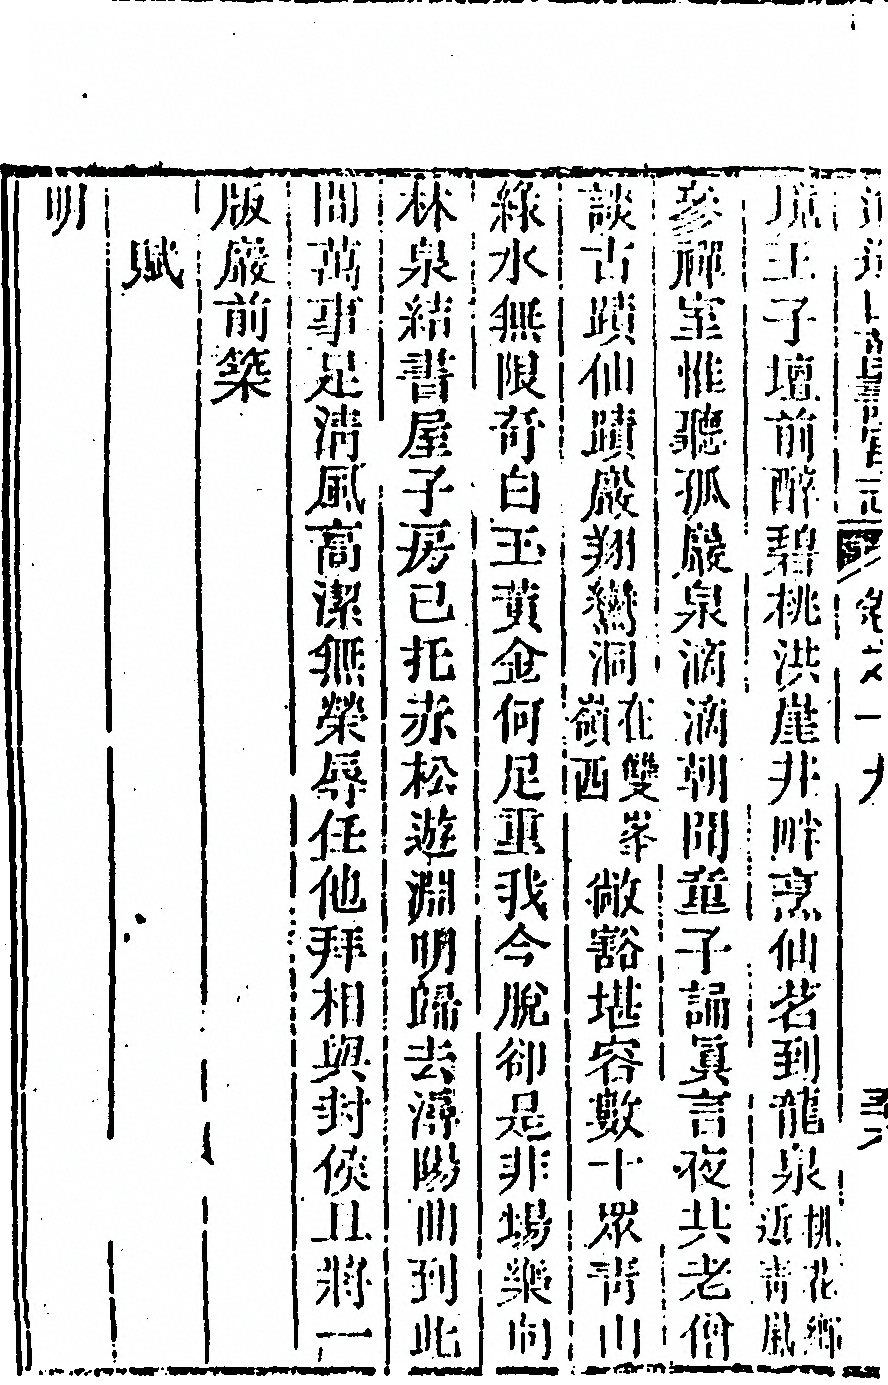 境王子壇前醉碧桃洪崖井畔烹仙茗到龍泉桃花鄉近青風
參禪室惟聽孤巖泉滴滴朝聞童子誦眞言夜共老僧
談古蹟仙蹟巖翔鸞洞在雙峯嶺西敞豁堪容數十眾靑山
綠水無限奇白玉黃金何足重我今脫卻是非場樂向
林泉結書屋子房已托赤松遊淵明歸去潯陽曲到此
間萬事足清風高潔無榮辱任他拜相與封侯且將一
版巖前築
賦
明